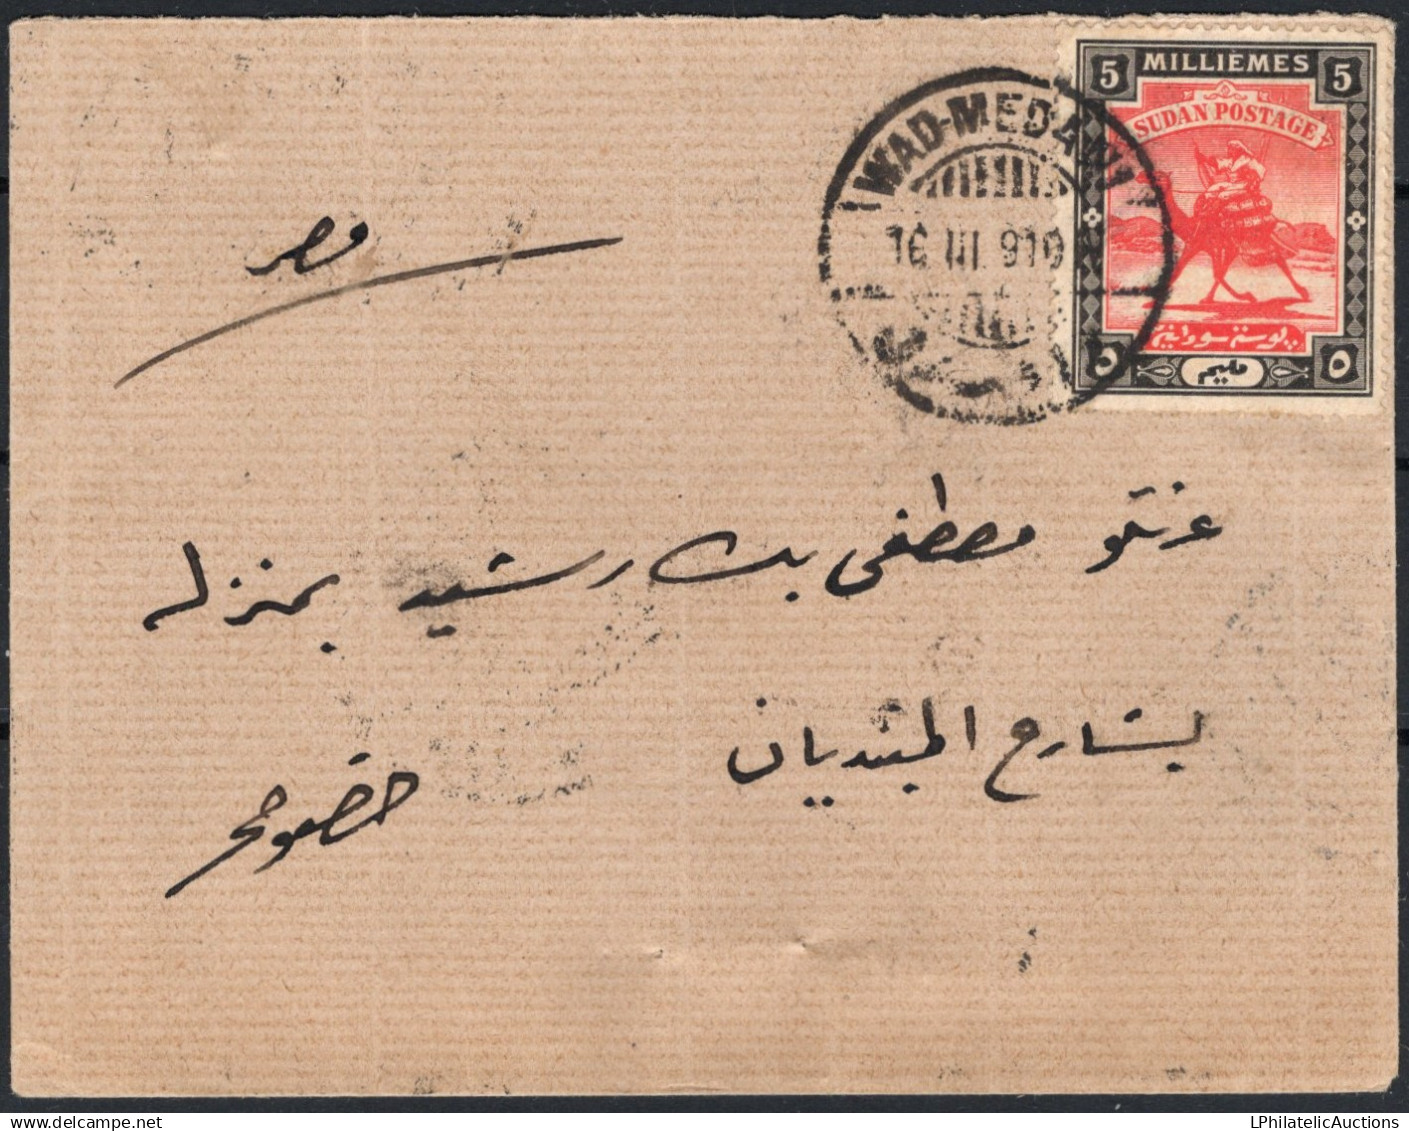 5 MILLIEMES 5
SUDAN POSTAGE
بوستة سودانية
٥ مليم ٥
WAD-MEDANI
16 III 910
مصر
عزتلو مصطفى بك رشيد بمنزله
بشارع المبتديان
خصوصى
LPhilatelicAuctions